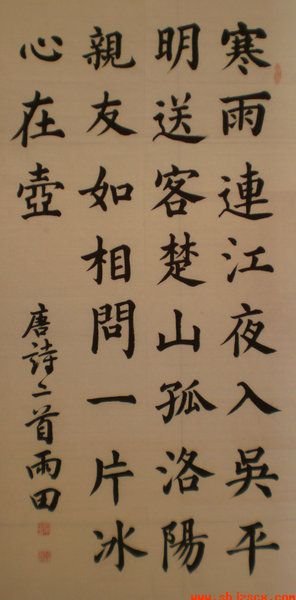 寒雨連江夜入吳平
明送客楚山孤洛陽
親友如相問一片冰
心在壺
唐詩二首雨田